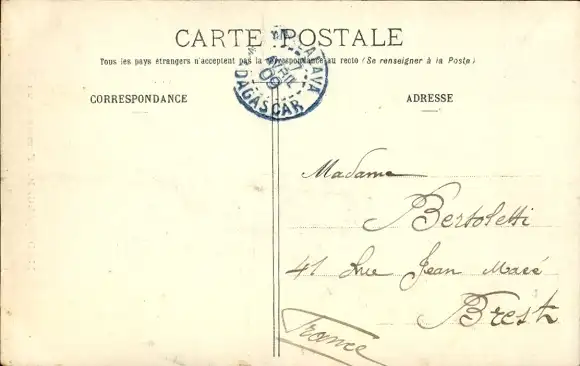 CARTE POSTALE
Tous les pays étrangers n'acceptent pas la correspondance au recto (Se renseigner à la Poste)
CORRESPONDANCE
ADRESSE
AVRIL
09
MADAGASCAR
Madame
Bertoletti
41 Rue Jean Macé
Brest
France